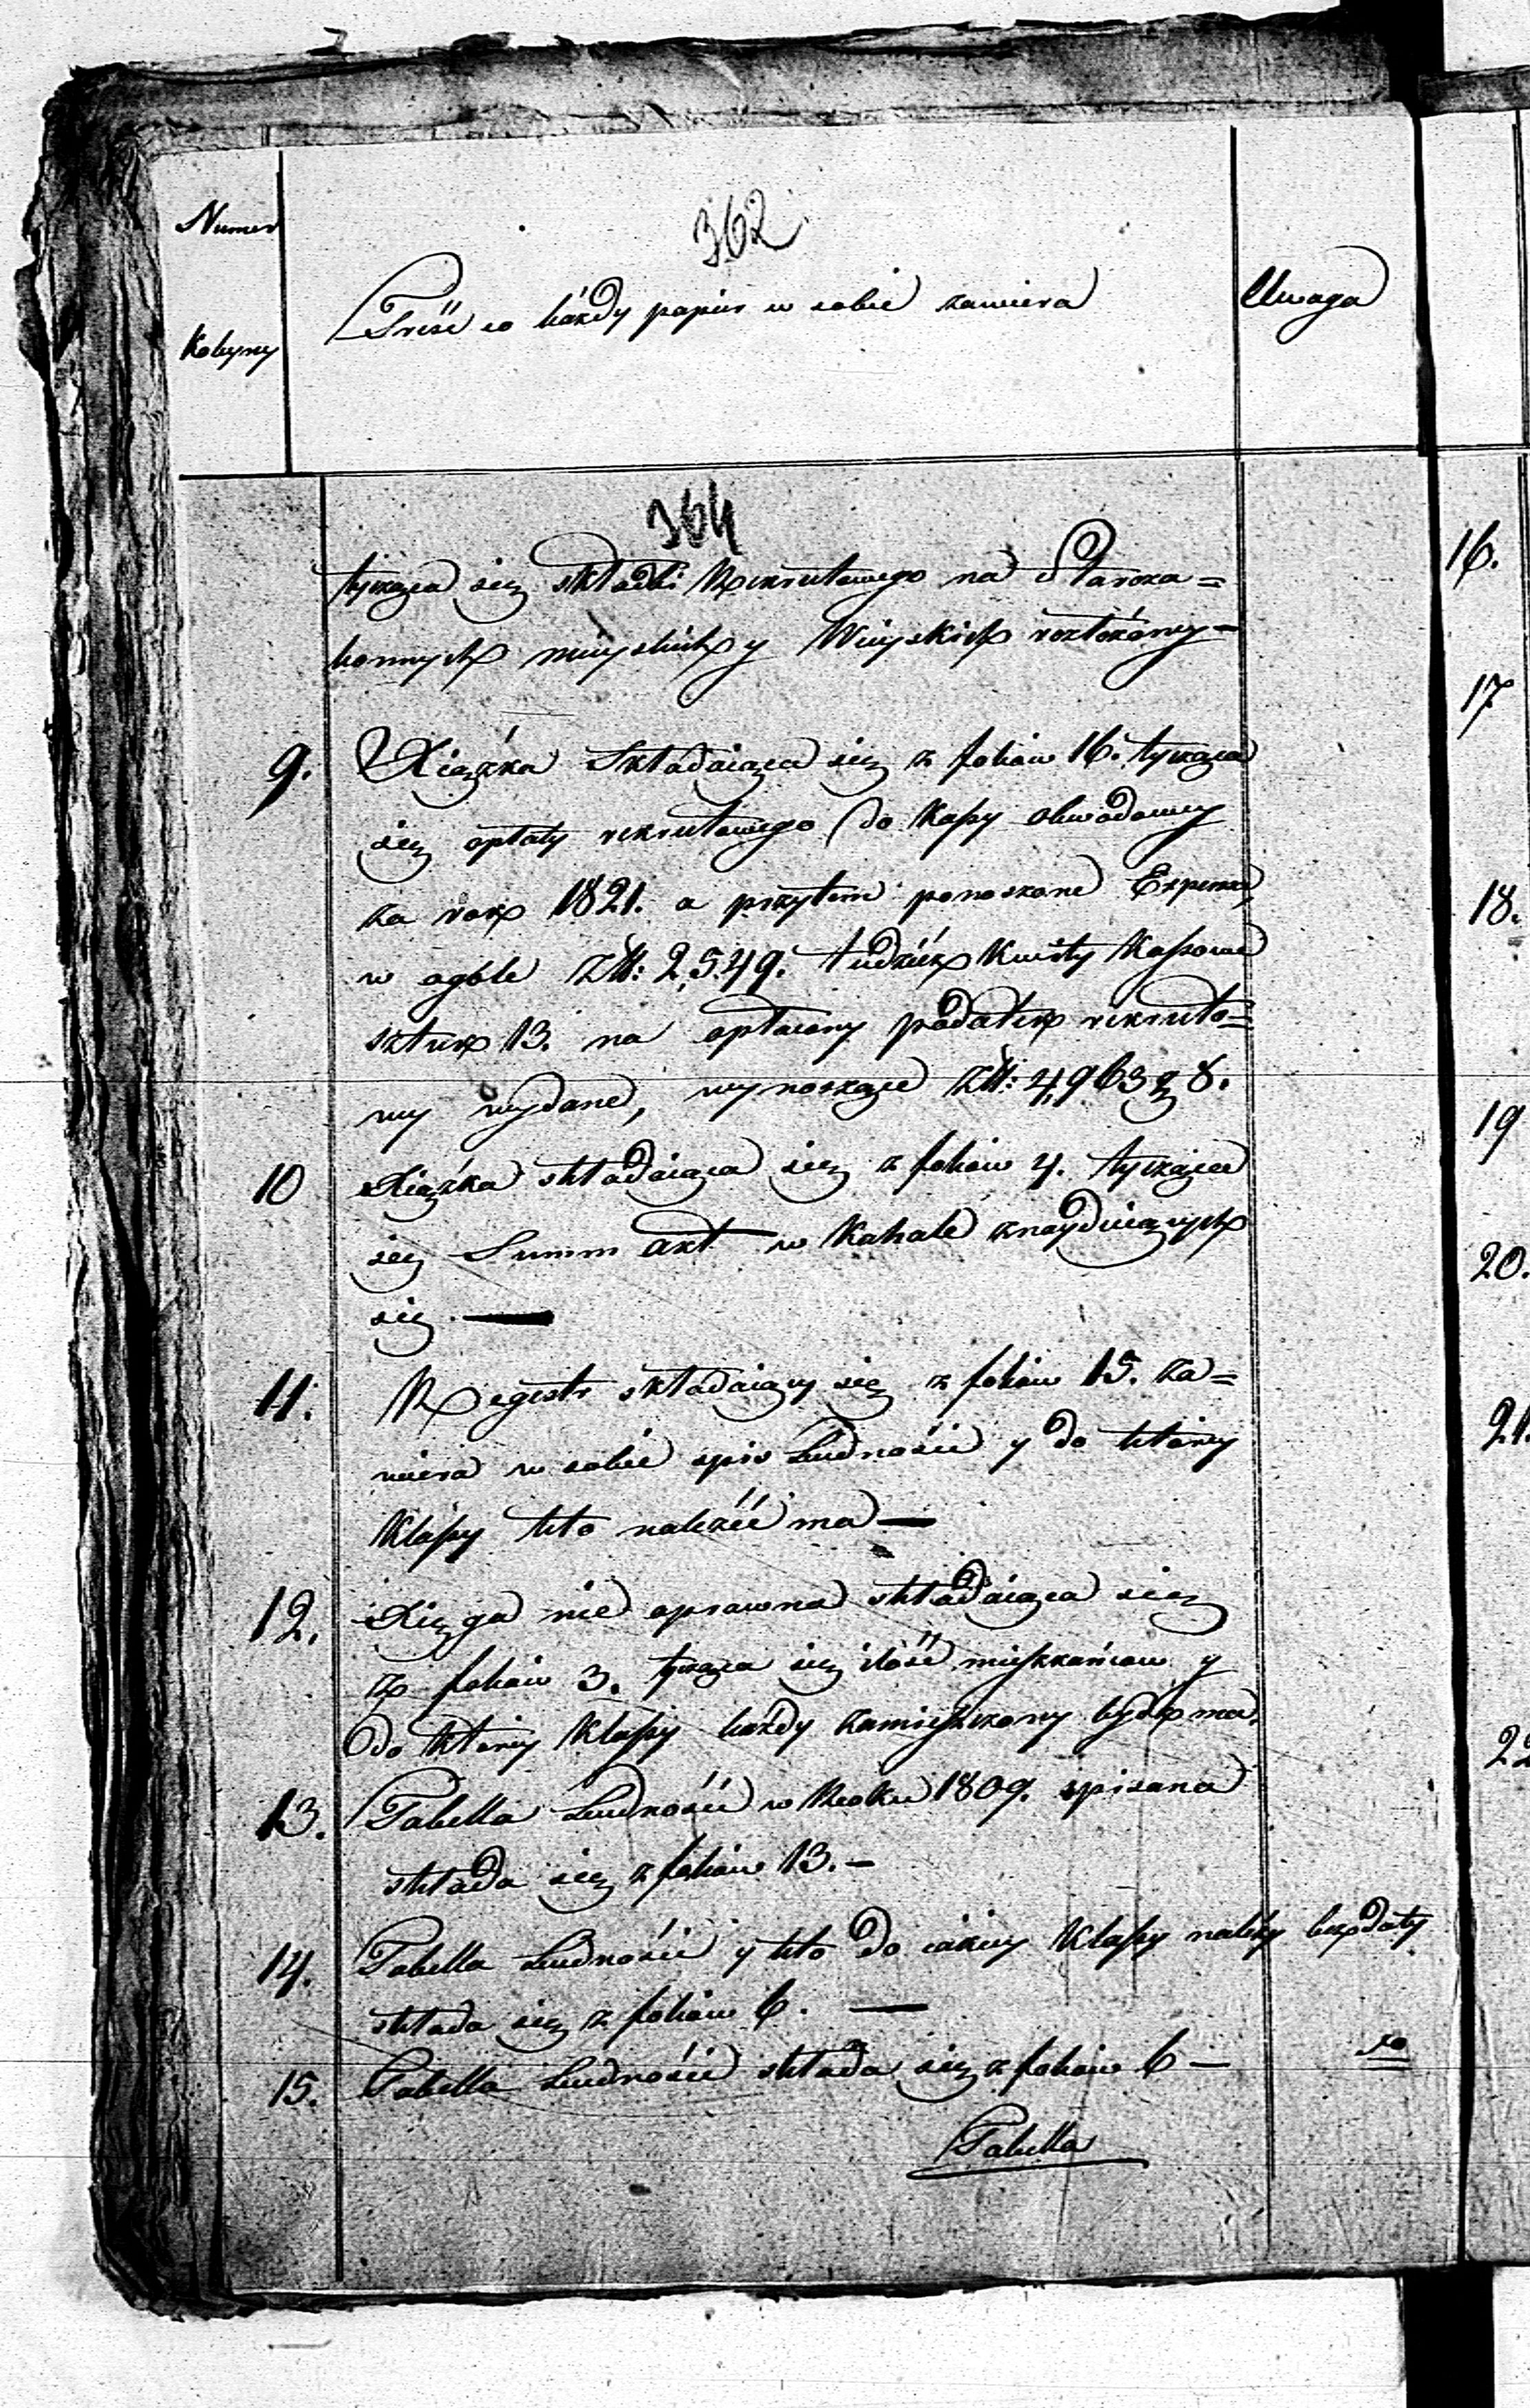 362
Numer
Kolejny
Treść co każdy papier w sobie zawiera
Uwaga
364
tycząca się składki Rekrutowego na Staroza=
konnych mieyskich y Wieyskich rozłożony –
9. Xiążka Składaiąca się z foliów 16. tycząca
się opłaty rekrutowego do Kassy obwodowey
za rok 1821. a przytem ponoszone Expensa,
w ogóle Złł: 2,549. tudzież Kwity Kassowe
sztuk 13. na opłacony podatek rekruto=
wy wydane, wynoszące Złł: 4,963 g 8.
10 Xiążka składaiąca się z foliów 4. tycząca
się Summ akt w Kahale znayduiących
się. —
11. Regestr składaiący się z foliów 15. za=
wiera w sobie spis Ludności y do którey
Klassy kto należeć ma —
12. Xięga nie oprawna składaiąca się
z foliów 3. tycząca się ilość mieszkańców y
do którey Klassy każdy zamieszczony bydź ma.
13. Tabella Ludności w Roku 1809. spisana
składa się z foliów 13. –
14. Tabella Ludności y kto do iakiey Klassy należy bez daty
składa się z foliów 6. —
15. Tabella Ludności składa się z foliów 6 –
Tabella
16.
17
18.
19
20.
21.